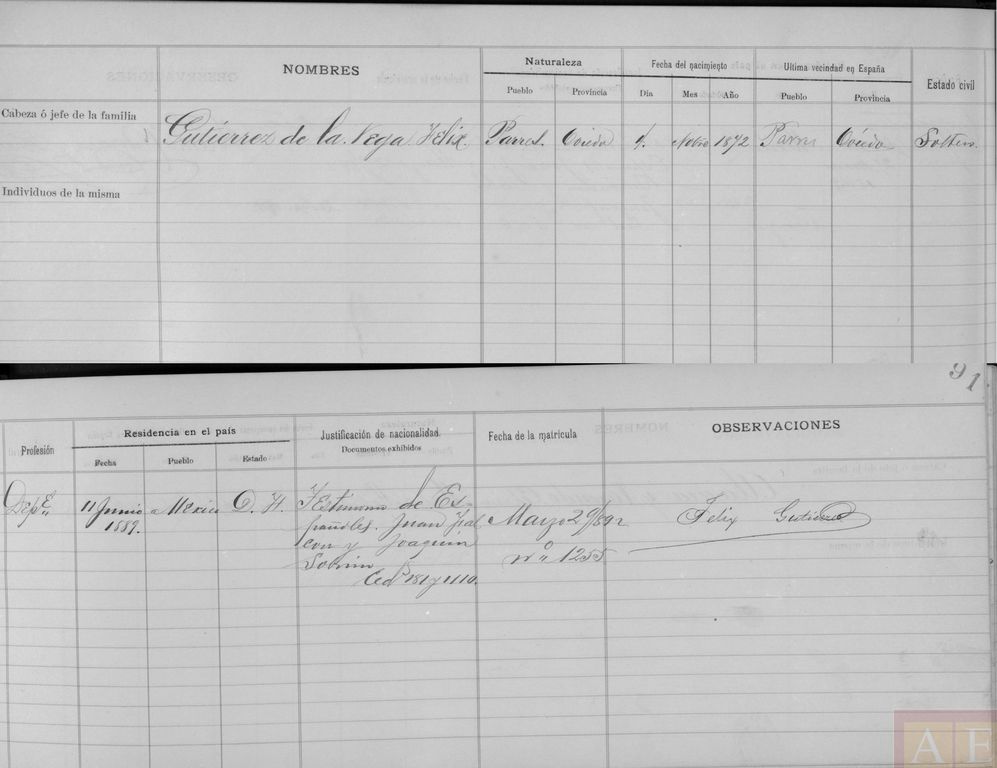 NOMBRES
Naturaleza
Fecha del nacimiento
Ultima vecindad en España
Estado civil
Pueblo
Provincia
Día
Mes
Año
Pueblo
Provincia
Cabeza ó jefe de la familia
Gutiérrez de la Vega Felix. Parres. Oviedo Nobre 1872 Parres Oviedo Soltero.
Individuos de la misma
91
Profesión
Residencia en el país
Justificación de nacionalidad.
Documentos exhibidos
Fecha de la matrícula
OBSERVACIONES
Fecha
Pueblo
Estado
Depte 11 Junio Mexico D. F. Testimonio de Es-
1889. pañoles. Juan Fal
con y Joaquin
Sobrin
Ced 181 y 1110.
Mayo 29/892
No 1255
Felix Gutierrez
AE